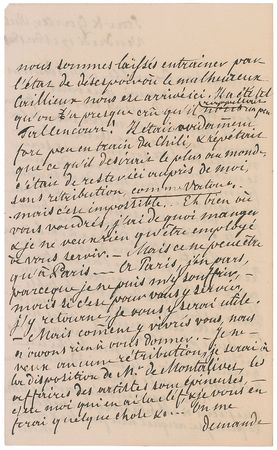 nous sommes laissés entrainer par
l'état de désespoir où le malheureux
Caillieux nous est arrivé ici. Il a été tel
qu'on l'a presque cru qu'il
Tallencourt! Il était evidemment
fort peu en train du Chili, & répétait
que ce qu'il desirait le plus au monde
c'était de rester ici auprès de moi,
sans retribution, comme
mais c'est impossible. — Et bien où
vous voudrez, j'ai de quoi manger
& je ne veux rien qu'être employé
à vous servir. — Mais ce ne peut être
qu'à Paris. — Et Paris, j'en pars,
parceque je ne puis m'y souffrir,
mais si c'est pour vous y servir,
j'y retourne, je vous y serai utile.
— Mais comment y vivrez vous, nous
n'avons rien à vous donner. — Je ne
veux aucune retribution, je serai à
la disposition de Mr. de Montalivet, les
affaires des artistes sont épineuses,
que moi qui en ai la clef & je vous en
ferai quelque chose &c. On me
demande